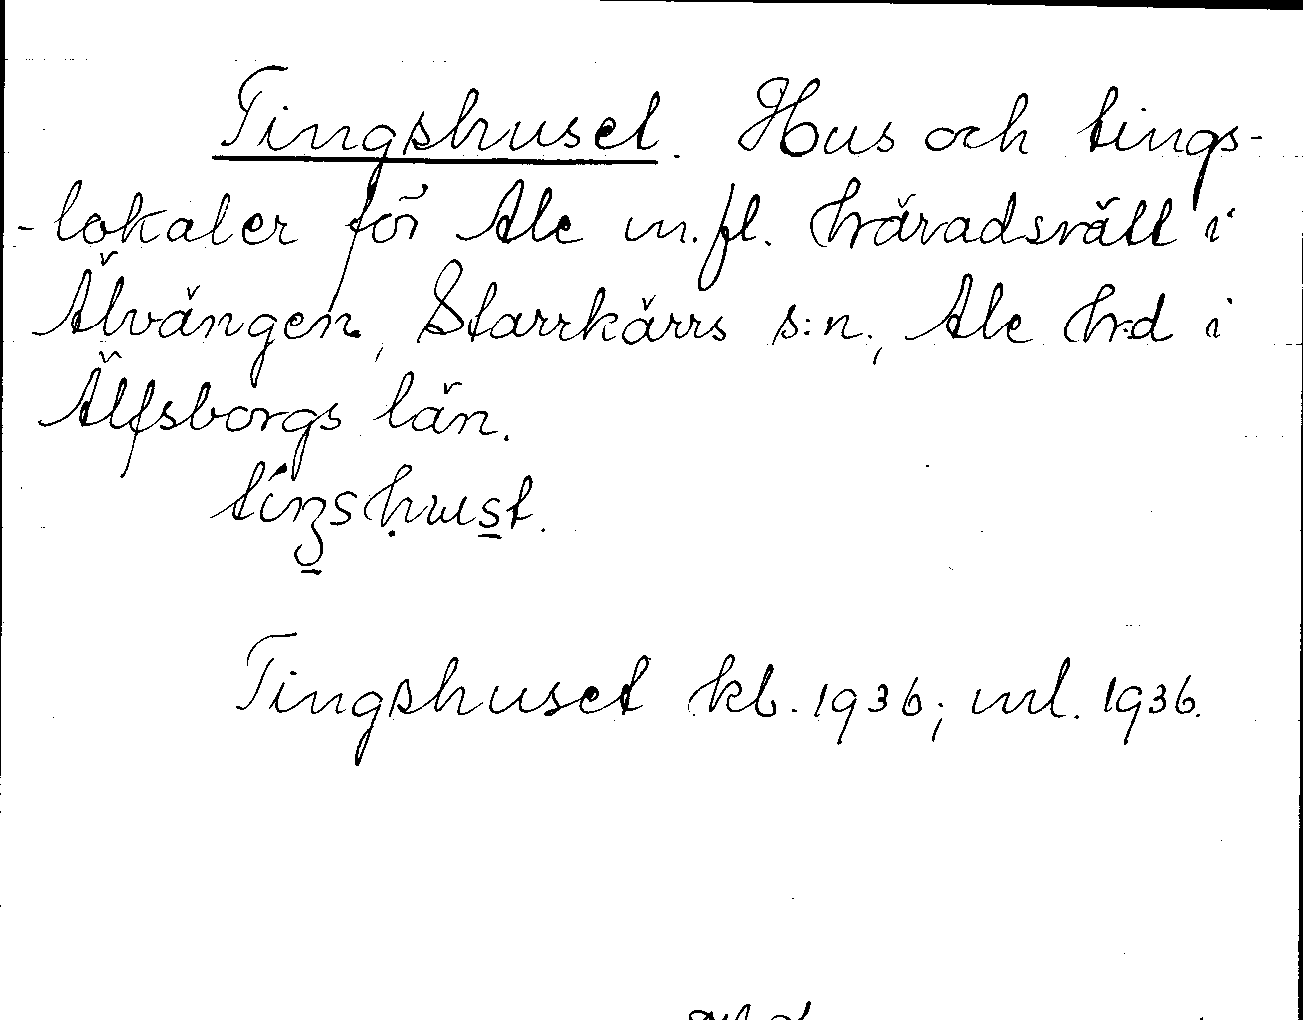 Tingshuset. Hus och tings-
-lokaler för Ale m.fl. häradsrätt i
Älvängen, Starrkärrs s:n, Ale hrd i
Älfsborgs län.
tiŋshust.
Tingshuset kb. 1936; ml. 1936.